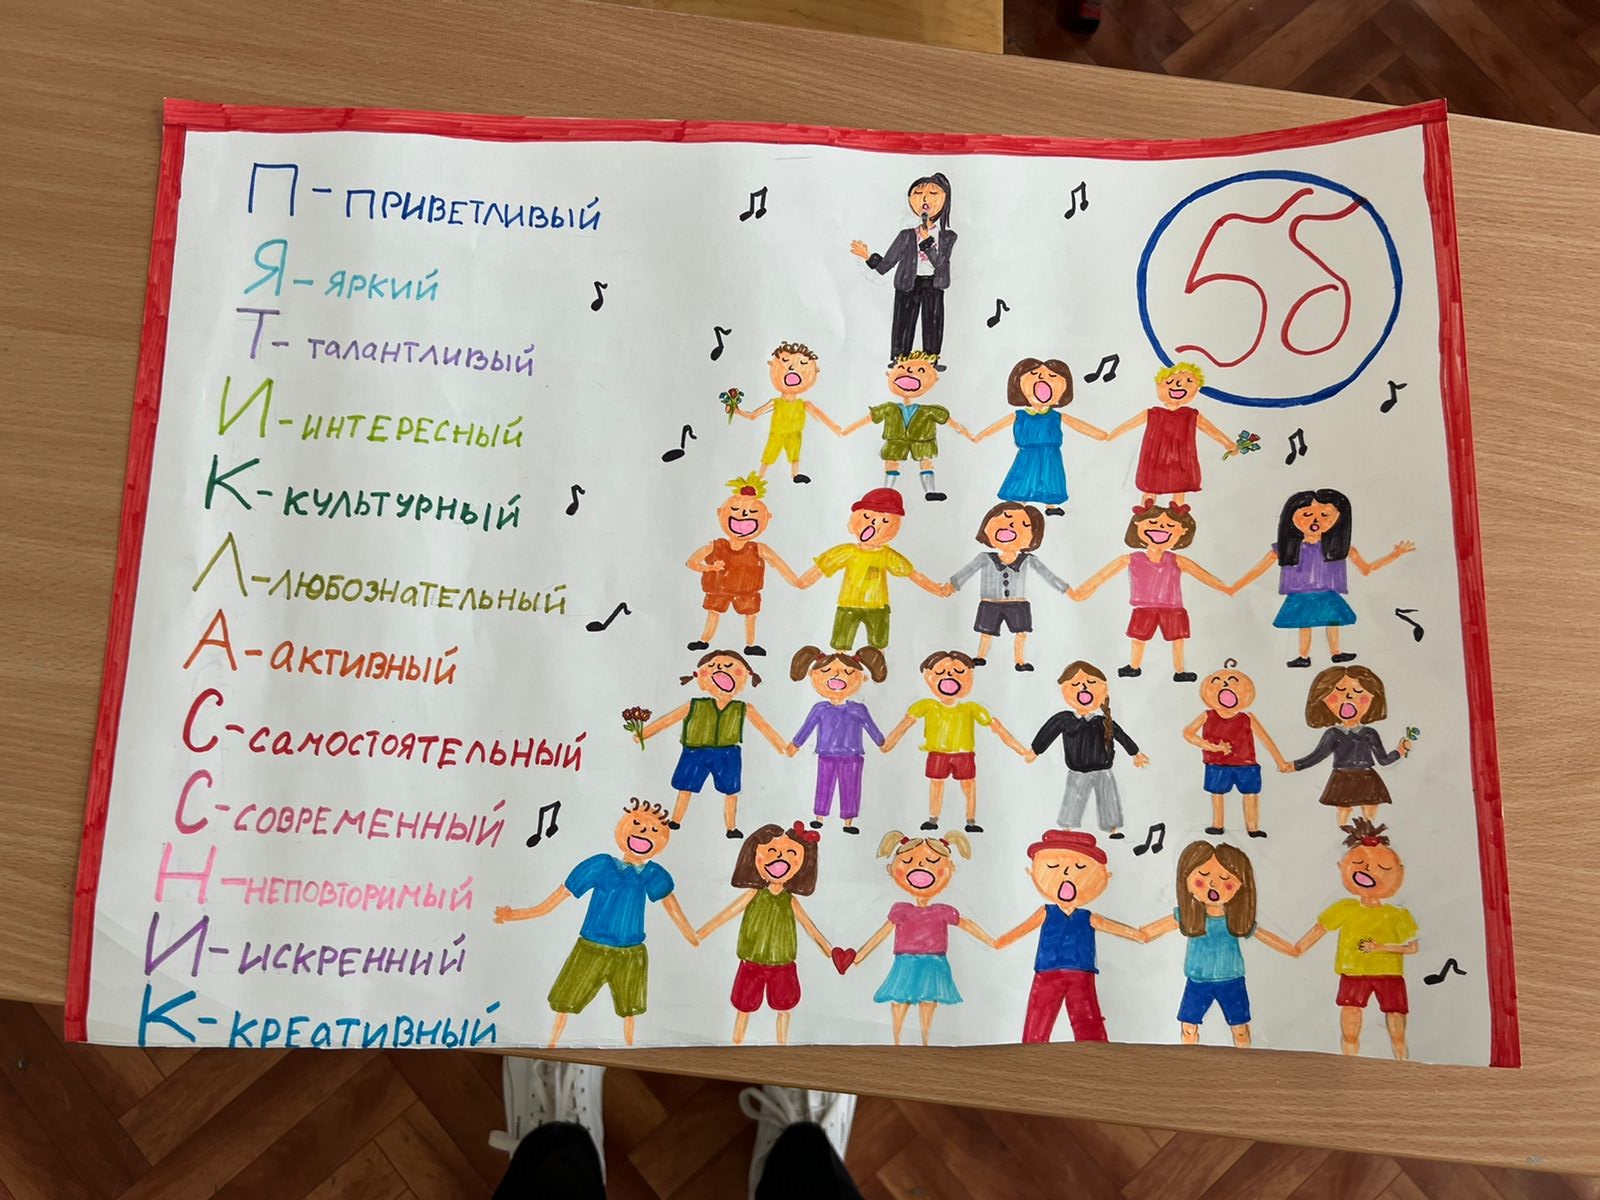 П - ПРИВЕТЛИВЫЙ
Я - ЯРКИЙ
Т - ТАЛАНТЛИВЫЙ
И - ИНТЕРЕСНЫЙ
К - КУЛЬТУРНЫЙ
Л - ЛЮБОЗНАТЕЛЬНЫЙ
А - АКТИВНЫЙ
С - САМОСТОЯТЕЛЬНЫЙ
С - СОВРЕМЕННЫЙ
Н - НЕПОВТОРИМЫЙ
И - ИСКРЕННИЙ
К - КРЕАТИВНЫЙ
5б